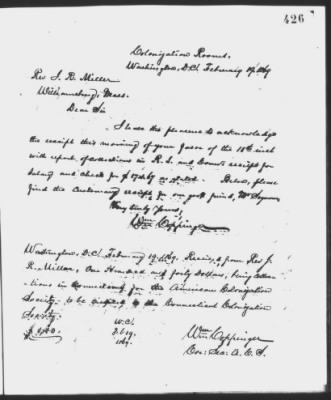 426
Colonization Rooms,
Washington, D.C. February 19, 1869
Rev. J. R. Miller
Williamsburg, Mass.
Dear Sir
I have the pleasure to acknowledge
the receipt this morning of your favor of the 18th inst
with report of collections in R.I. and Connt. receipt for
salary and check for $ as stated. Below, please
find the customary receipt for our good friend, Mr. Seymour
Very truly Yours,
Wm Coppinger
Washington, D.C. February 19, 1869. Received from Rev. J.
R. Miller, One Hundred and forty Dollars, being collec-
tions in Connecticut for the American Colonization
Society, to be credited to the Connecticut Colonization
Society.
$140.
Wm Coppinger
Cor: Sec: A. C. S.